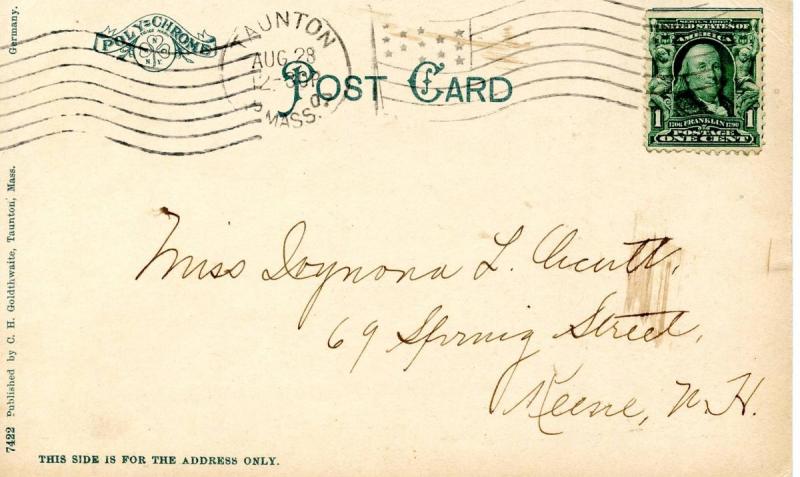 POLY-CHROME
N.Y.
TAUNTON
AUG 28
MASS.
POST CARD
SERIES 1902
UNITED STATES OF
AMERICA
1706 FRANKLIN 1790
1 POSTAGE 1
ONE CENT
Miss L.
69 Spring Street,
Keene, N.H.
THIS SIDE IS FOR THE ADDRESS ONLY.
7422 Published by C. H. Goldthwaite, Taunton, Mass. Germany.